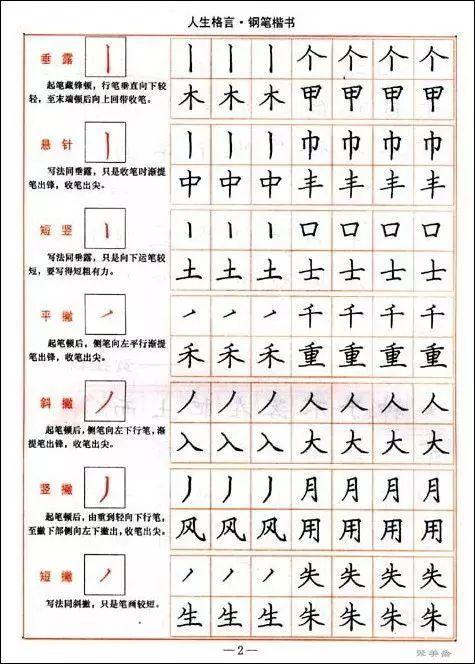 人生格言·钢笔楷书
垂露
起笔藏锋顿，行笔垂直向下较
轻，至末端顿后向上回带收笔。
丨丨丨个个个个
木木木甲甲甲甲
悬针
写法同垂露，只是收笔时渐提
笔出锋，收笔出尖。
丨丨丨巾巾巾巾
中中中丰丰丰丰
短竖
写法同垂露，只是向下运笔较
短，要写得短粗有力。
丨丨丨口口口口
土土土士士士士
平撇
起笔顿后，侧笔向左平行渐提
笔出锋，收笔出尖。
丿丿丿千千千千
禾禾禾重重重重
斜撇
起笔顿后，侧笔向左下行笔，渐
提笔出锋，收笔出尖。
丿丿丿人人人人
入入入大大大大
竖撇
起笔顿后，由重到轻向下行笔，
至撇下部侧向左下撇出，收笔出尖。
丿丿丿月月月月
风风风用用用用
短撇
写法同斜撇，只是笔画较短。
丿丿丿失失失失
生生生朱朱朱朱
—2—